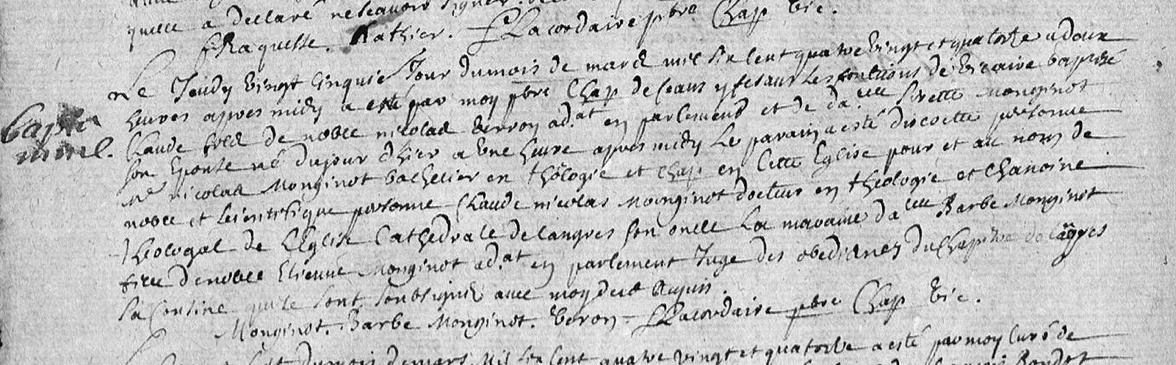 quelle a declaré ne scavoir signer
fRaquette. Rathier. Lacordaire pbre Chap vic.
Le Jeudy vingt cinquie Jour du mois de mars mil six cent quatre vingt et quatorze a deux
Baptê
heures apres midy a esté par moy pbre Chap de ceans y fesant les fonctions de vicaire baptisé
mine.
Claude fils de noble nicolas verron ad.at en parlement et de da.elle Monginot
son Epouse né du jour d'hier a une heure apres midy Le parain a esté discrette personne
Mre nicolas Monginot bachelier en théologie et Chap en Cette Eglise pour et au nom de
noble et scientifique personne Claude nicolas Monginot docteur en theologie et Chanoine
theologal de L'Eglise Cathedrale de langres son oncle La maraine da.elle Barbe Monginot
fille de noble Etienne Monginot ad.at en parlement Juge des obediances du Chapitre de lãgres
sa Cousine qui se sont soubsignés avec moy
Monginot. Barbe Monginot. veron. Lacordaire pbre Chap vic.
du mois de mars mil six cent quatre vingt et quatorze a esté par moy curé de